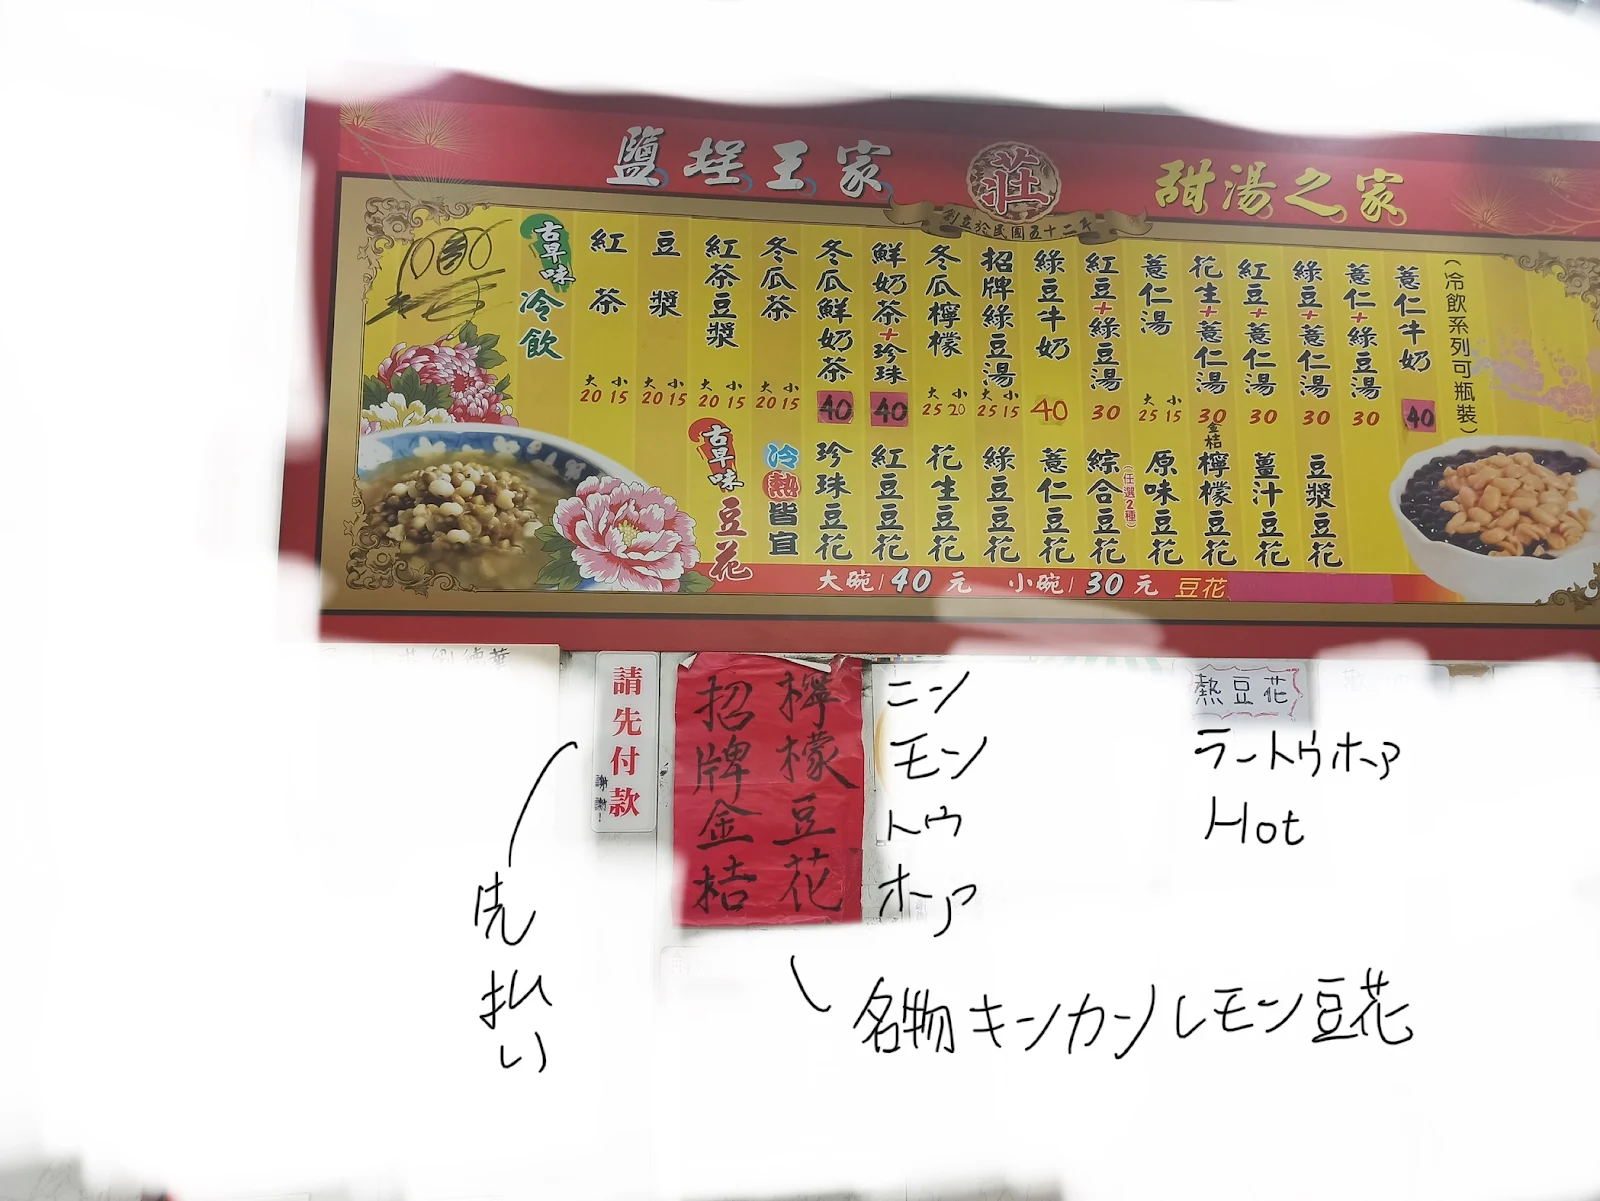 鹽埕王家 莊 甜湯之家
創立於民國五十二年
古早味冷飲
紅茶 大20 小15
豆漿 大20 小15
紅茶豆漿 大20 小15
冬瓜茶 大20 小15
冬瓜鮮奶茶 40
鮮奶茶+珍珠 40
冬瓜檸檬 大25 小20
招牌綠豆湯 大25 小15
綠豆牛奶 40
紅豆+綠豆湯 30
薏仁湯 大25 小15
花生+薏仁湯 30
紅豆+薏仁湯 30
綠豆+薏仁湯 30
薏仁+綠豆湯 30
薏仁牛奶 40
(冷飲系列可瓶裝)
古早味豆花
冷熱皆宜
珍珠豆花
紅豆豆花
花生豆花
綠豆豆花
薏仁豆花
綜合豆花(任選2種)
原味豆花
金桔檸檬豆花
薑汁豆花
豆漿豆花
大碗/40元 小碗/30元 豆花
請先付款
謝謝!
檸檬豆花
招牌金桔
ニン
モン
トウ
ホァ
熱豆花
ラートウホァ
Hot
先払い
名物キンカンレモン豆花